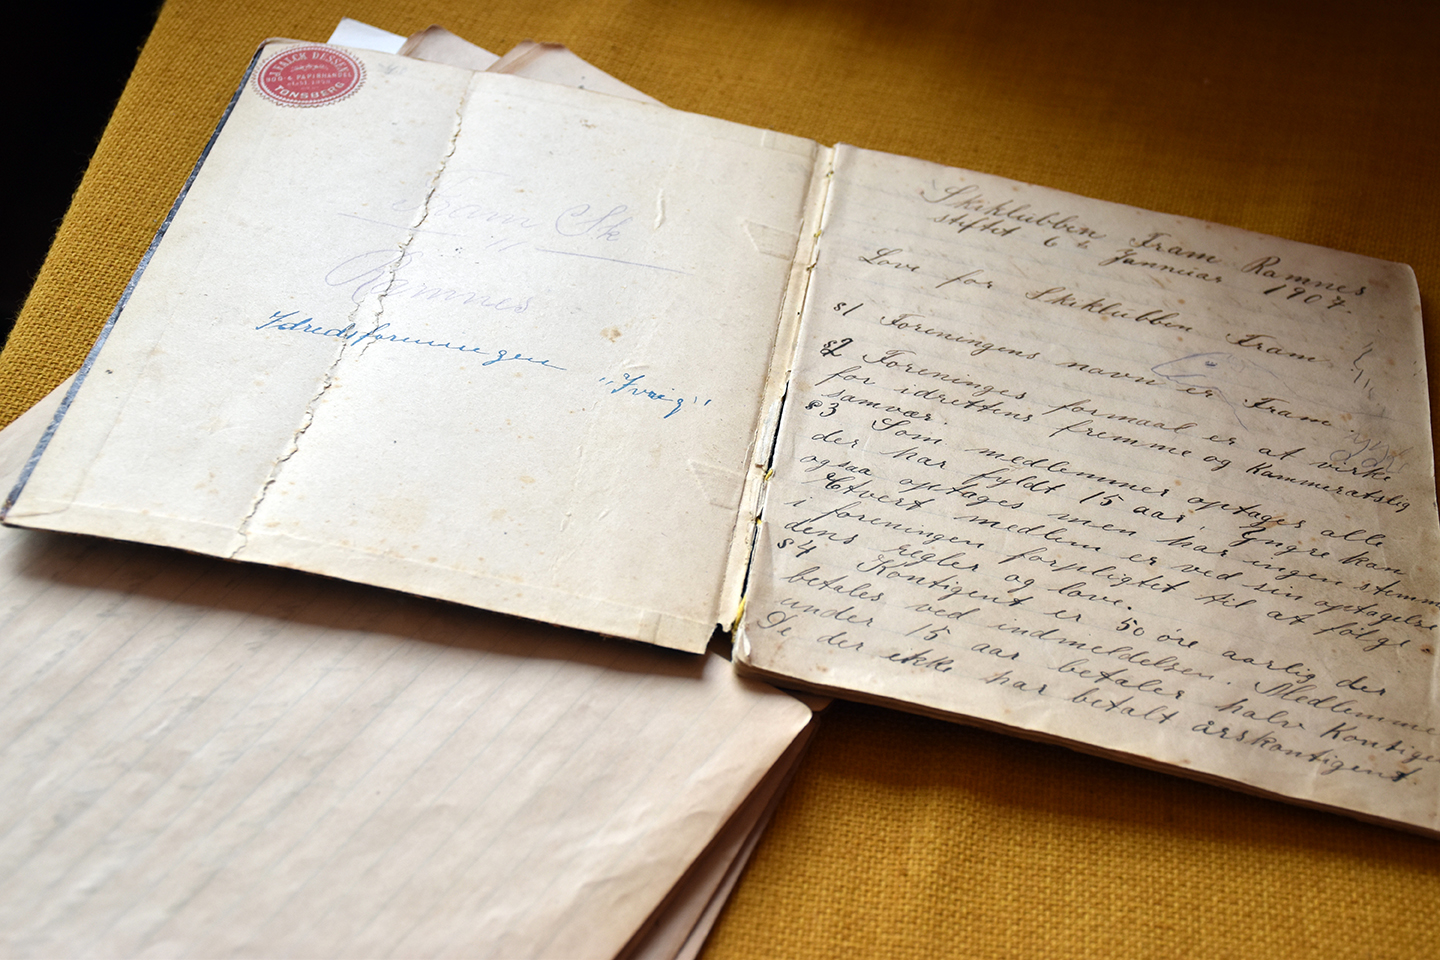 J. FALCK DESSEN
BOG- & PAPIRHANDEL
TØNSBERG
Fram Sk
Ramnes
Idredsforeningen "Ivrig"
Skiklubben Fram Ramnes
stiftet 6te Januar 1907.
Love for Skiklubben Fram.
§1 Foreningens navn er Fram.
§2 Foreninges formaal er at virke
for idrettens fremme og kammeratslig
samvær.
§3 Som medlemmer optages alle
der har fyldt 15 aar. Yngre kan
ogsaa optages men har ingen stemm
Hvert medlem er ved sin optagelse
i foreningen forpligtet til at følge
dens regler og love.
§4 Kontigent er 50 øre aarlig der
betales ved indmeldelsen. Medlemme
under 15 aar betaler halv Kontigen
De der ikke har betalt årskontigent.